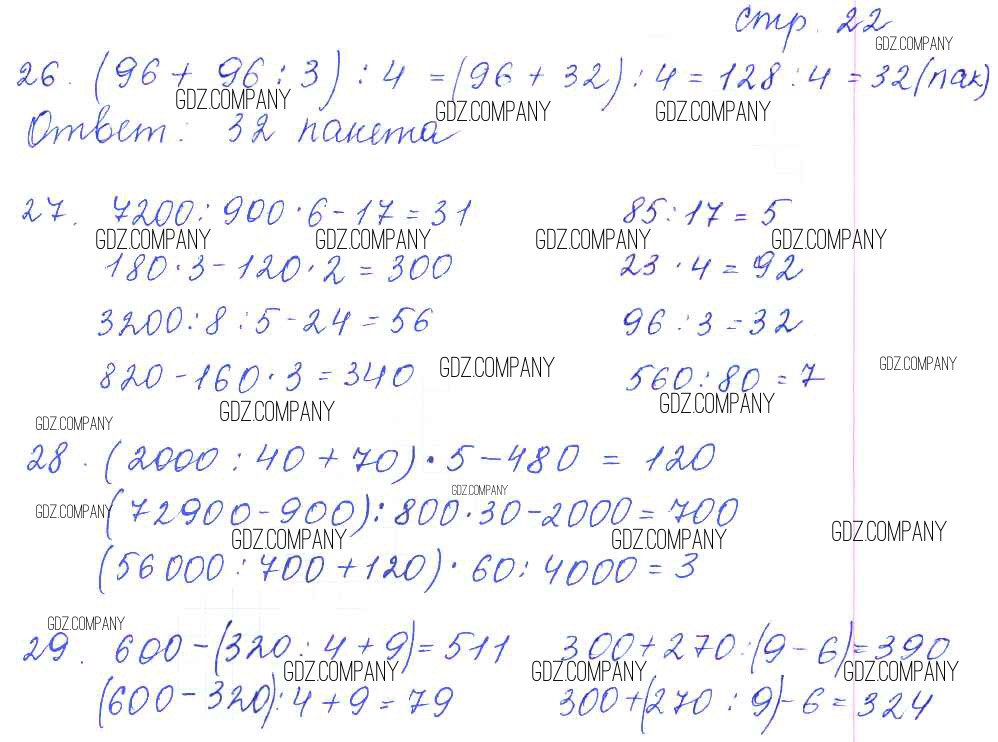 стр. 22
GDZ.COMPANY
26. (96 + 96 : 3) : 4 = (96 + 32) : 4 = 128 : 4 = 32 (пак)
GDZ.COMPANY GDZ.COMPANY GDZ.COMPANY
Ответ: 32 пакета
27. 7200 : 900 · 6 - 17 = 31 85 : 17 = 5
GDZ.COMPANY GDZ.COMPANY GDZ.COMPANY GDZ.COMPANY
180 · 3 - 120 · 2 = 300 23 · 4 = 92
3200 : 8 : 5 - 24 = 56 96 : 3 = 32
GDZ.COMPANY GDZ.COMPANY
820 - 160 · 3 = 340 560 : 80 = 7
GDZ.COMPANY GDZ.COMPANY
GDZ.COMPANY
28. (2000 : 40 + 70) · 5 - 480 = 120
GDZ.COMPANY
GDZ.COMPANY (72900 - 900) : 800 · 30 - 2000 = 700
GDZ.COMPANY GDZ.COMPANY GDZ.COMPANY
(56000 : 700 + 120) · 60 : 4000 = 3
GDZ.COMPANY
29. 600 - (320 : 4 + 9) = 511 300 + 270 : (9 - 6) = 390
GDZ.COMPANY GDZ.COMPANY GDZ.COMPANY
(600 - 320) : 4 + 9 = 79 300 + (270 : 9) - 6 = 324